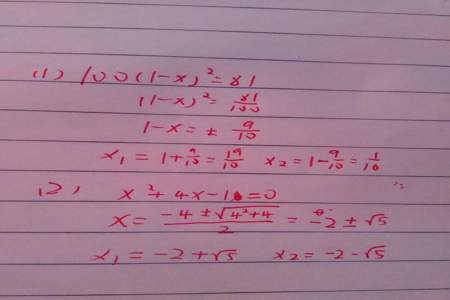 (1) 100(1-x)²=81
(1-x)²=81/100
1-x=±9/10
x₁=1+9/10=19/10 x₂=1-9/10=1/10
(2) x²+4x-1=0
x=(-4±√(4²+4))/2=-2±√5
x₁=-2+√5 x₂=-2-√5